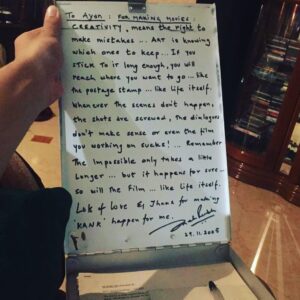 To Ayan : FOR MAKING MOVIES :
CREATIVITY, means the right to
make mistakes... ART is knowing
which ones to keep... If you
STICK To it long enough, you will
reach where you want to go... like
the postage stamp... like life itself.
Whenever the scenes don't happen,
the shots are screwed, the dialogues
don't make sense or even the film
you working on sucks!... Remember
The Impossible only takes a little
Longer... but it happens for sure -
so will the Film... like Life itself.
Lots of Love & Jhana for making
'KANK' happen for me.
29.11.2005